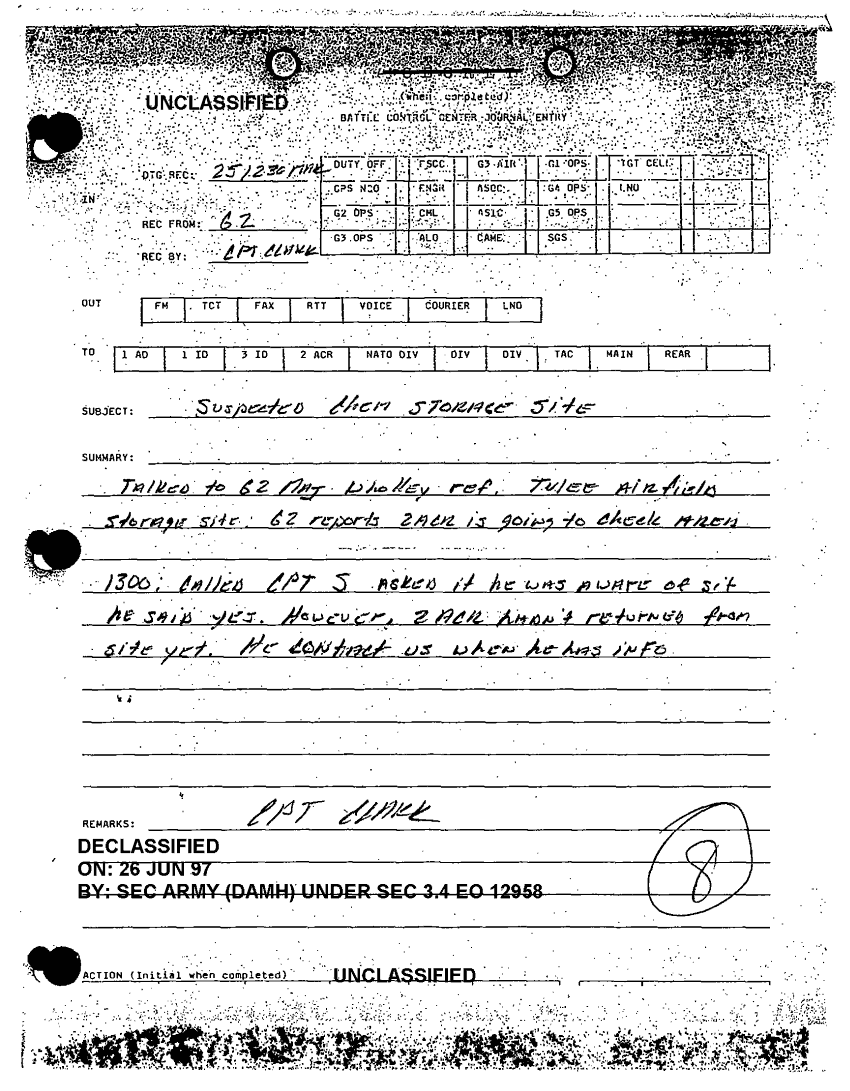 UNCLASSIFIED
(when completed)
BATTLE CONTROL CENTER JOURNAL ENTRY
IN
DTG REC: 251230 MAR
REC FROM: G2
REC BY: CPT CLARK
DUTY OFF FSCC G3 AIR G1 OPS TGT CELL
OPS NCO ENGR ASOC G4 OPS LNO
G2 OPS CML ASIC G5 OPS
G3 OPS ALO CAME SGS
OUT FM TCT FAX RTT VOICE COURIER LNO
TO 1 AD 1 ID 3 ID 2 ACR NATO DIV DIV DIV TAC MAIN REAR
SUBJECT: Suspected chem storage site
SUMMARY:
Talked to G2 Maj Wholley ref. Tulee Airfield
storage site. G2 reports 2ACR is going to check area
1300: Called CPT S asked if he was aware of sit
he said yes. However, 2 ACR hadn't returned from
site yet. He contact us when he has info
REMARKS: CPT CLARK
DECLASSIFIED
ON: 26 JUN 97
BY: SEC ARMY (DAMH) UNDER SEC 3.4 EO 12958
8
ACTION (Initial when completed) UNCLASSIFIED